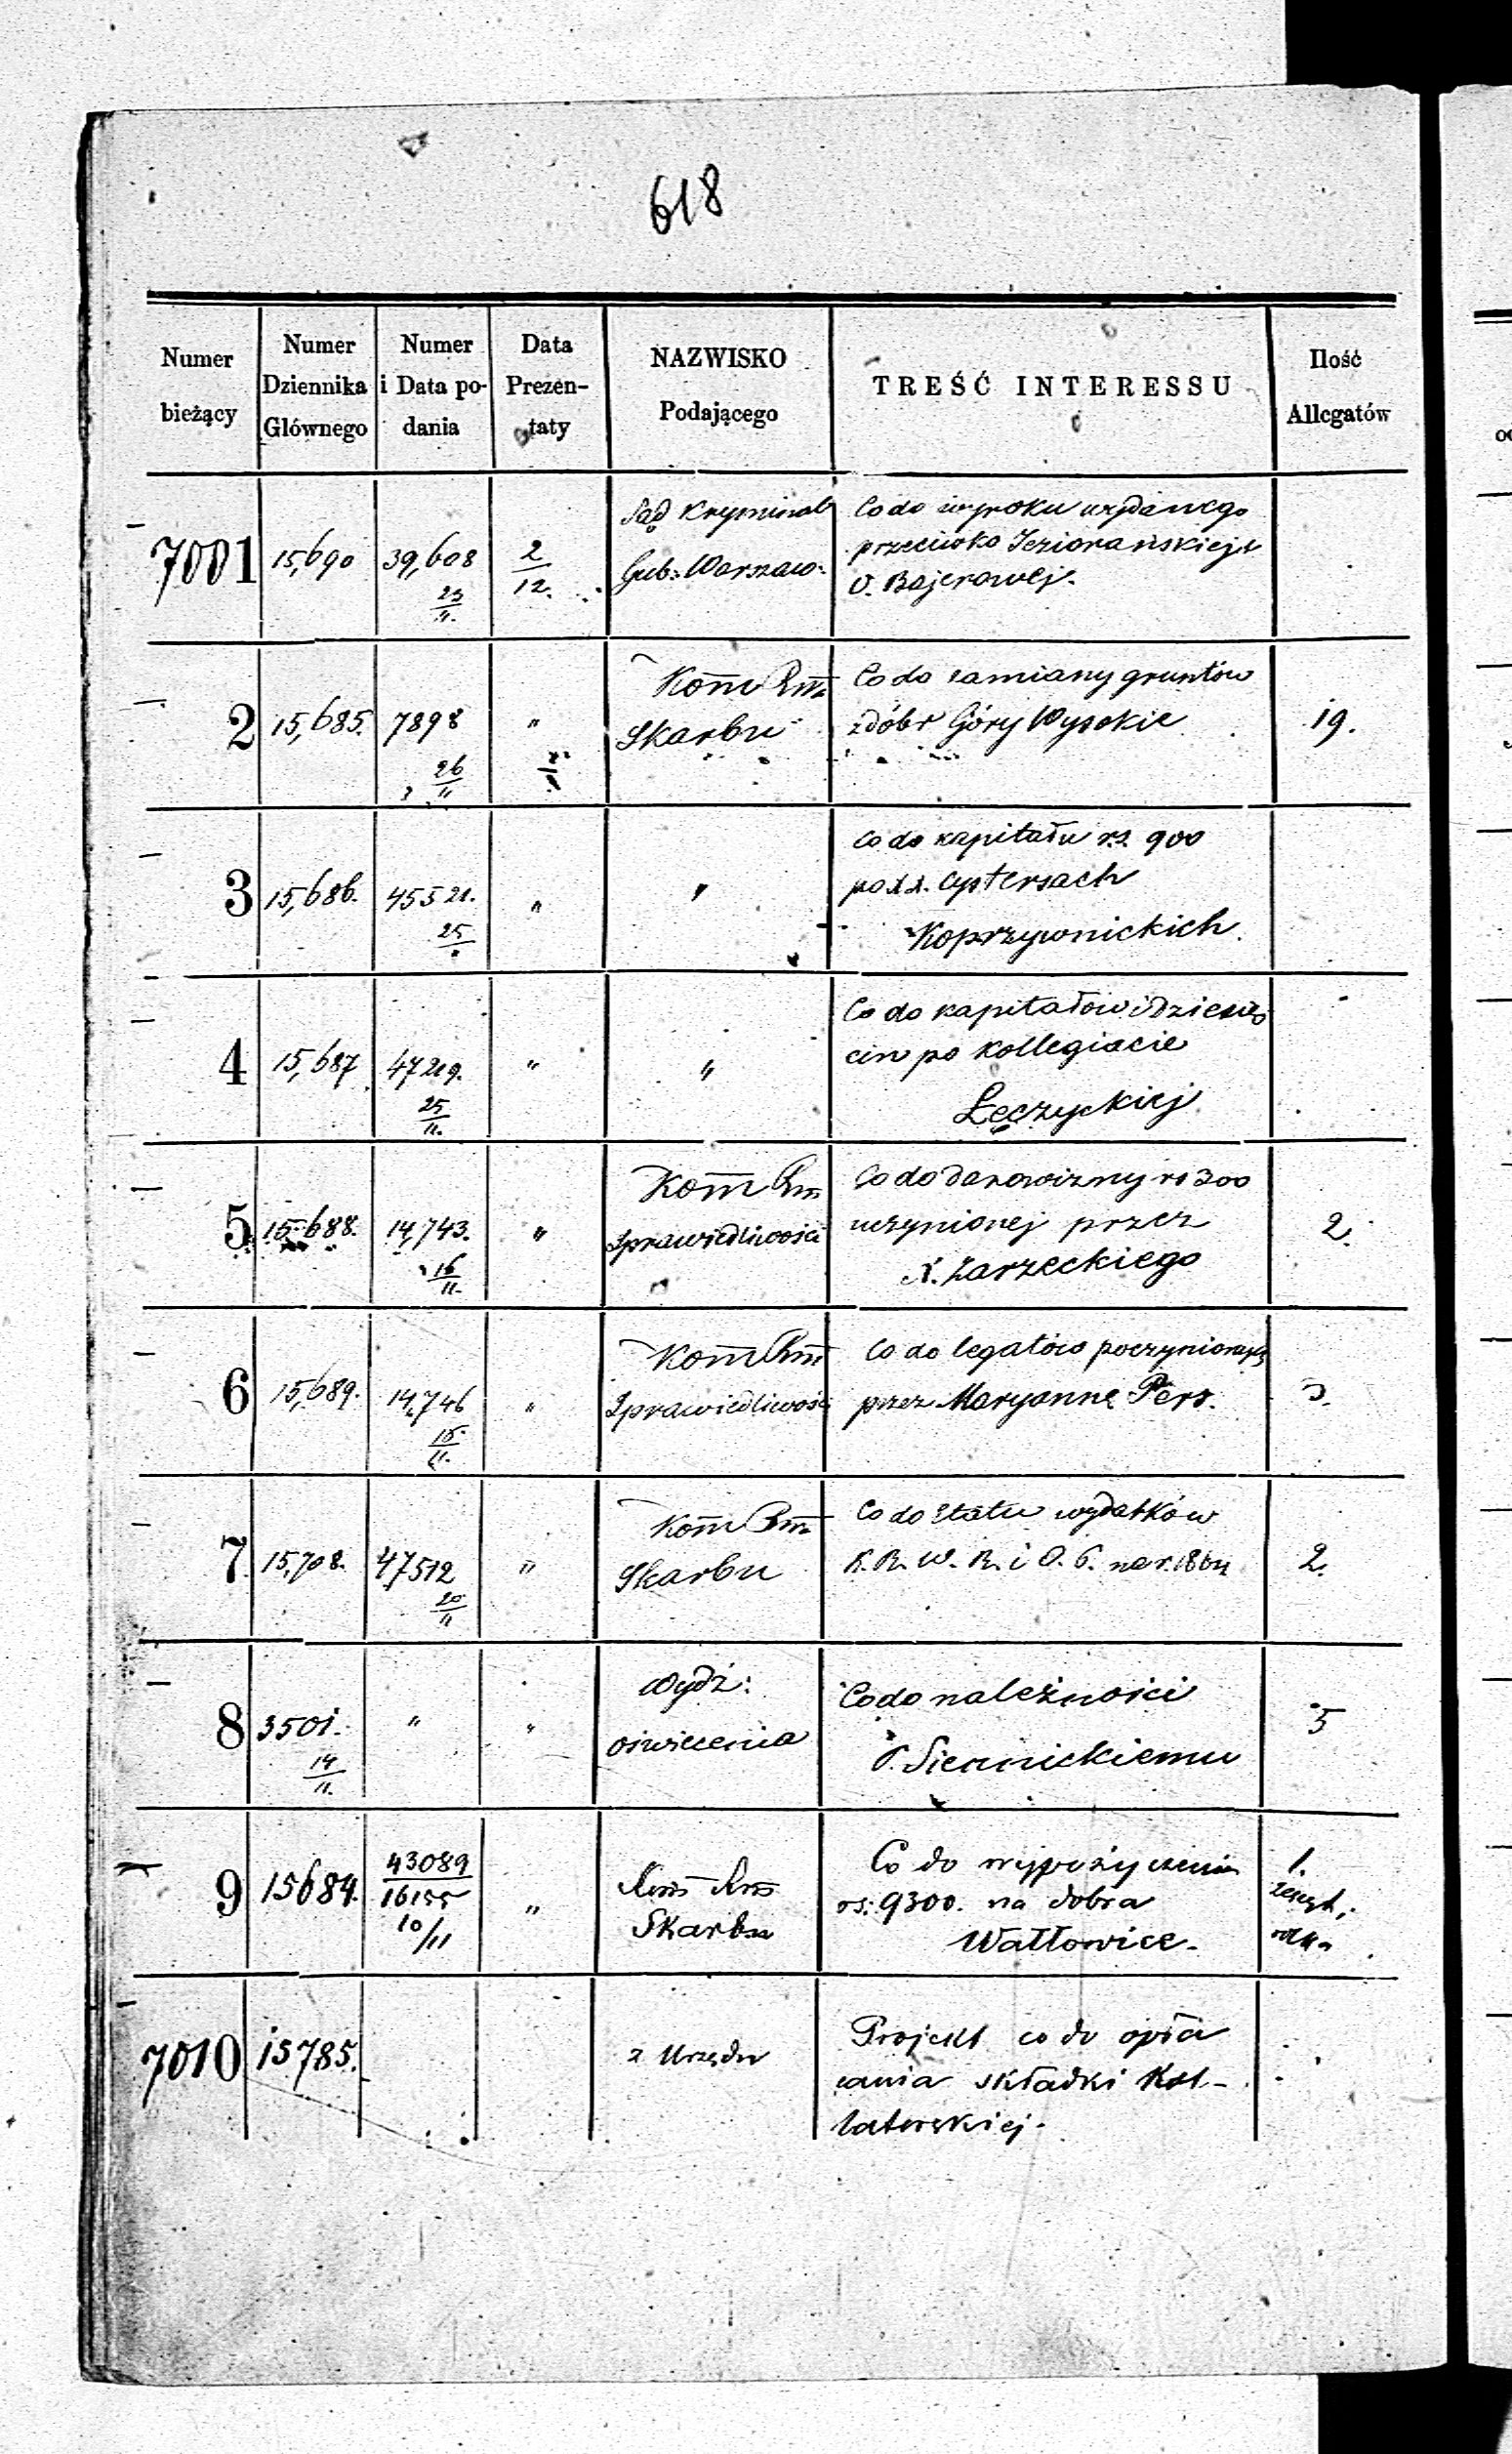 618
Numer bieżący
Numer Dziennika Głównego
Numer i Data podania
Data Prezen-taty
NAZWISKO Podającego
TREŚĆ INTERESSU
Ilość Allegatów
7001 15,690 39,608 2/12. Sąd Kryminal Co do wyroku wydanego
Gub: Warszaw: przeciwko Jeziorańskiej i
O. Bajerowej.
2 15,685. 7898 26/11 " Kom̄ Rm̄ Co do zamiany gruntów 19.
Skarbu z dóbr Góry Wysokie
3 15,686. 45521. 25 " " Co do kapitału rs. 900
po XX. Cystersach
Koprzywnickich.
4 15,687 47219. 25/11. " " Co do kapitałów i dziesię
cin po Kollegiacie
Łęczyckiej
5 15688. 14,743. 16/11. " Kom̄ Rm̄ Co do darowizny rs 300 2.
Sprawiedliwości uczynionej przez
X. Zarzeckiego
6 15,689. 14,746 15/11. " Kom̄ Rm̄ Co do legatów poczynionych 3.
Sprawiedliwości przez Maryannę Pers.
7 15,708. 47,512 20/11 " Kom̄ Rm̄ Co do etatu wydatków 2.
Skarbu K. R. W. R. i O. P. na r. 1864
8 3501. 14/11. " " Wydz: Co do należności 5
oświecenia P. Siennickiemu
9 15684. 43089/16155 10/11 " Kom̄ Rm̄ Co do wypożyczenia 1.
Skarbu rs: 9300. na dobra
Wałłowice.
7010 15785. z Urzędu Projekt co do opła
cania składki Kol-
laterskiej.